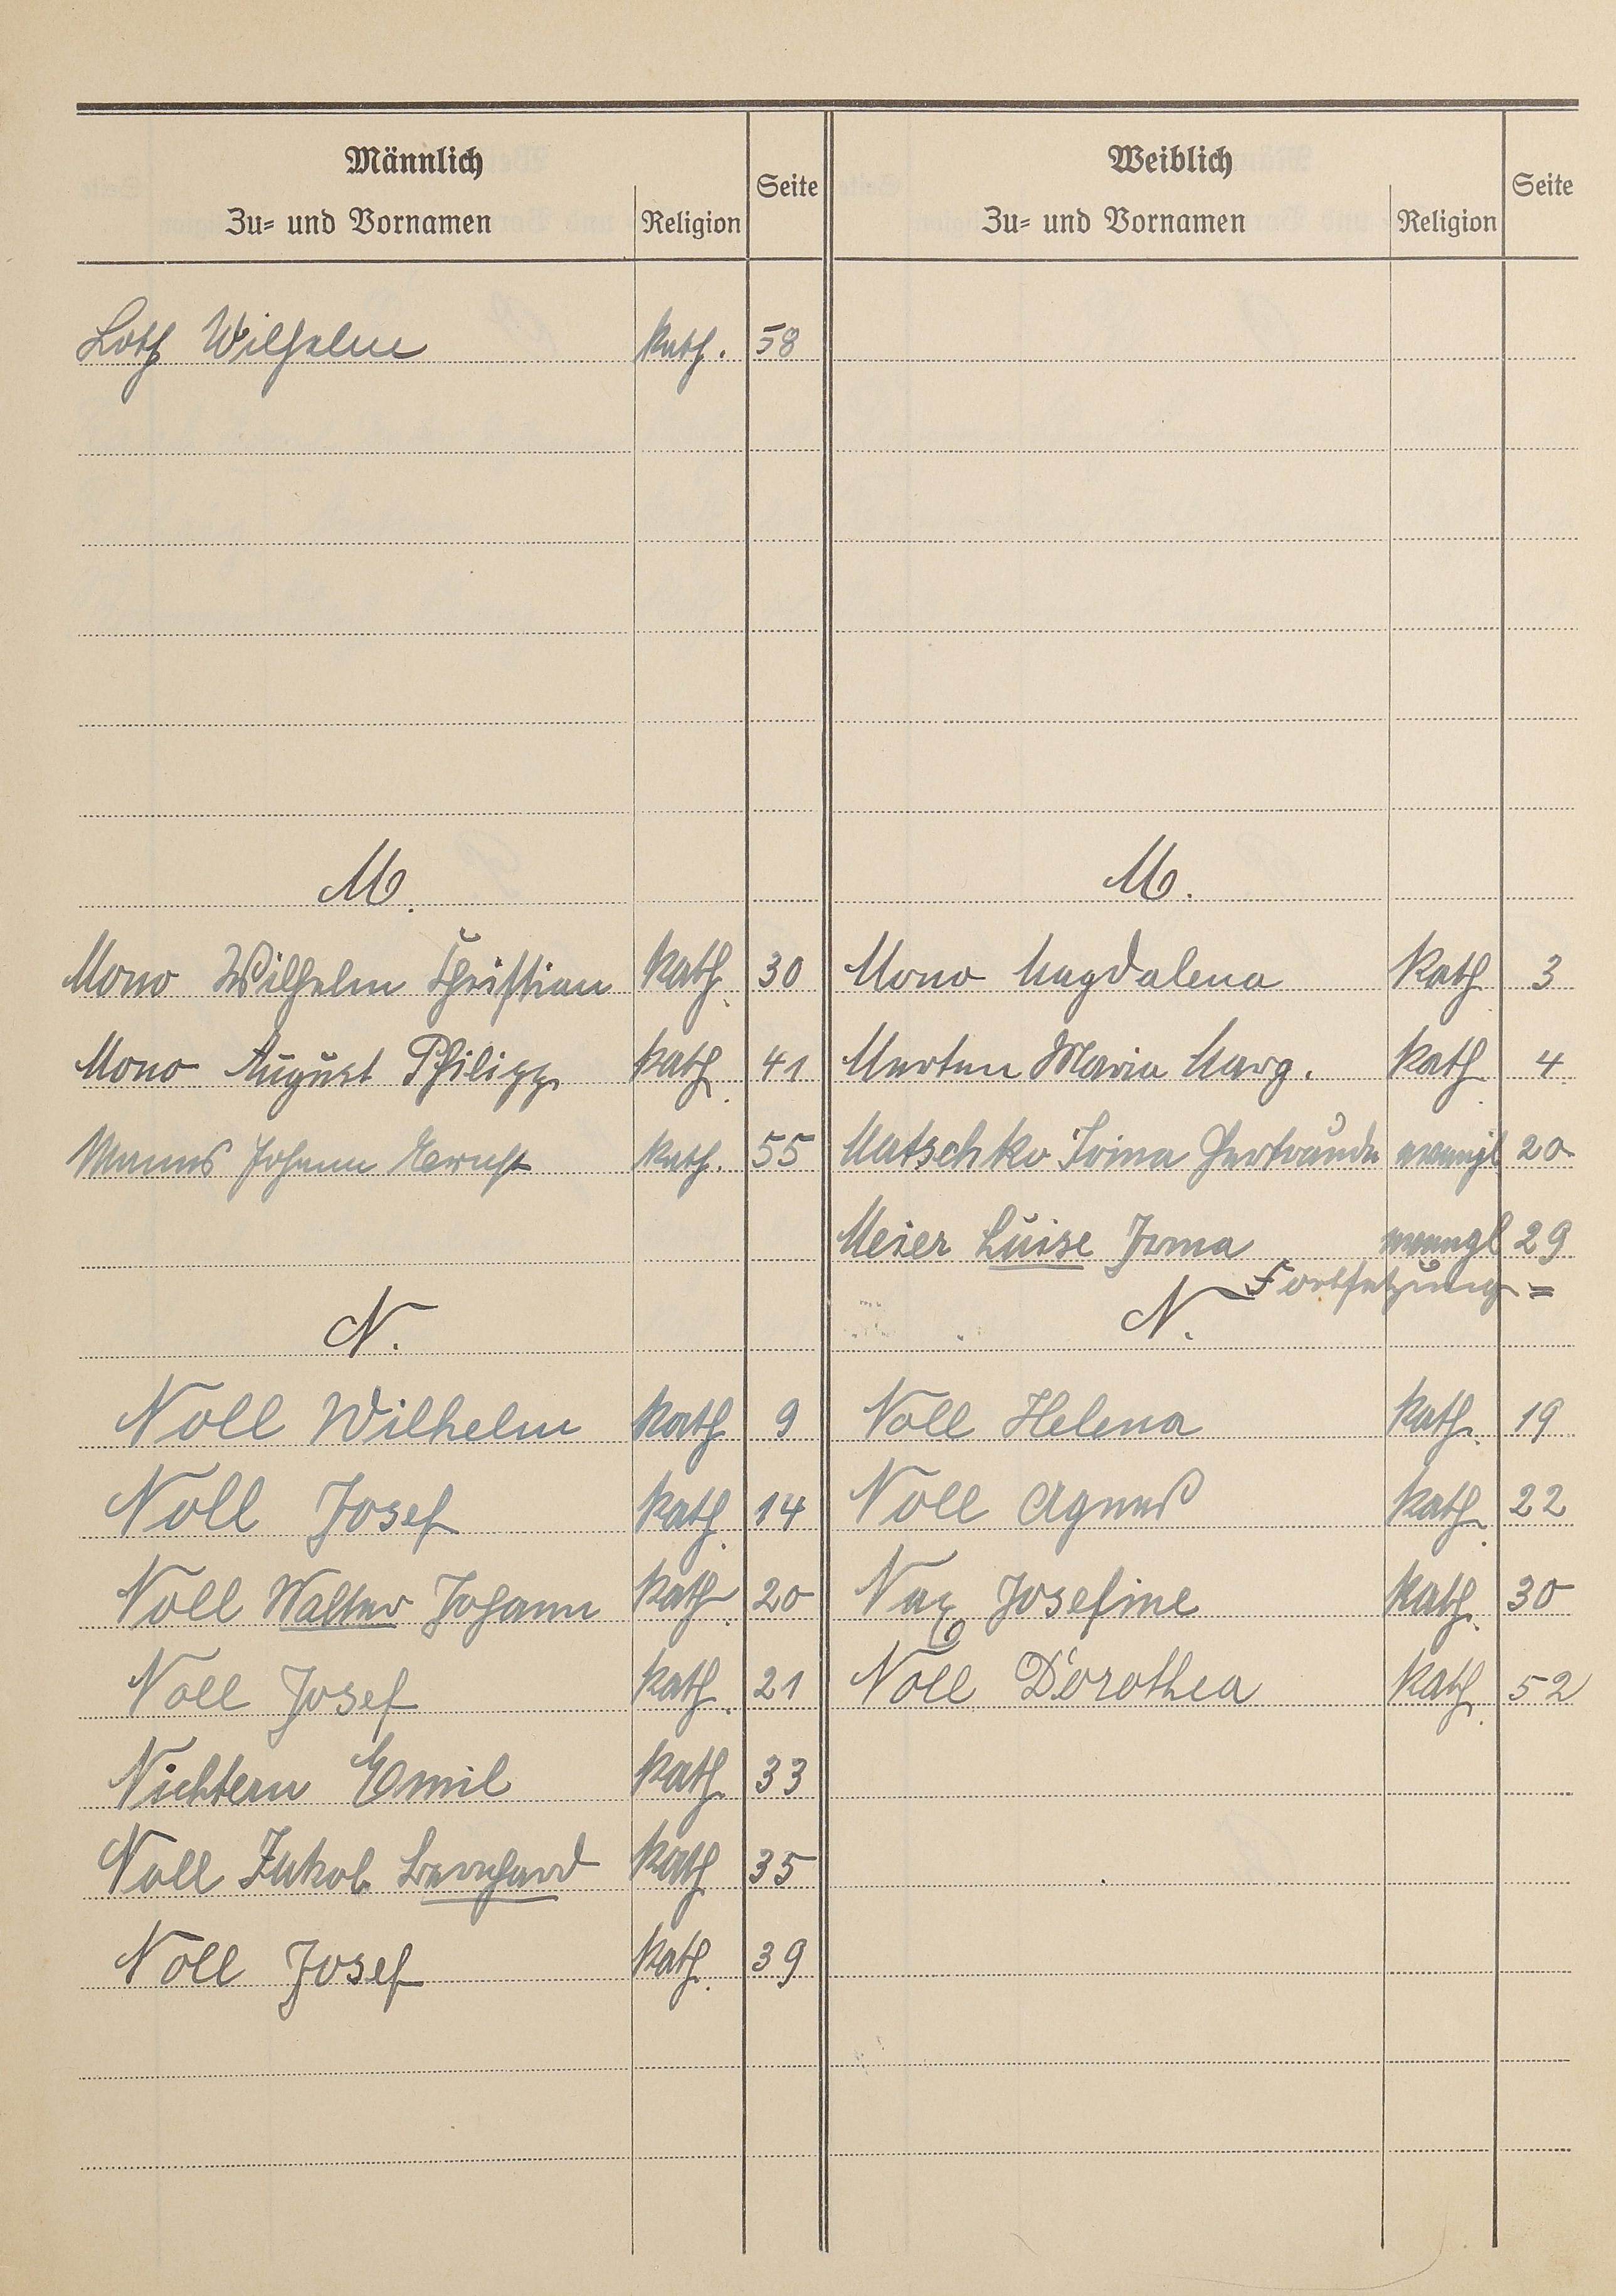 Männlich
Zu- und Vornamen Religion Seite
Loth Wilhelm kath. 58
M.
Mono Wilhelm Christian kath. 30
Mono August Philipp kath. 41
Manns Johann Ernst kath. 55
N.
Noll Wilhelm kath 9
Noll Josef kath. 14
Noll Walter Johann kath. 20
Noll Josef kath. 21
Nichtern Emil kath. 33
Noll Jakob Bernhard kath 35
Noll Josef kath. 39
Weiblich
Zu- und Vornamen Religion Seite
M.
Mono Magdalena kath. 3
Merten Maria Marg. kath. 4
Matschko Irma Gertraude evangl 20
Meier Luise Irma evangl 29
Fortsetzung =
N.
Noll Helena kath. 19
Noll Agnes kath. 22
Nax Josefine kath. 30
Noll Dorothea kath. 52